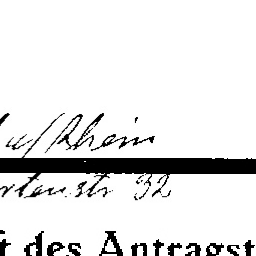 /Rhein
rtenstr 32
ft des Antragst